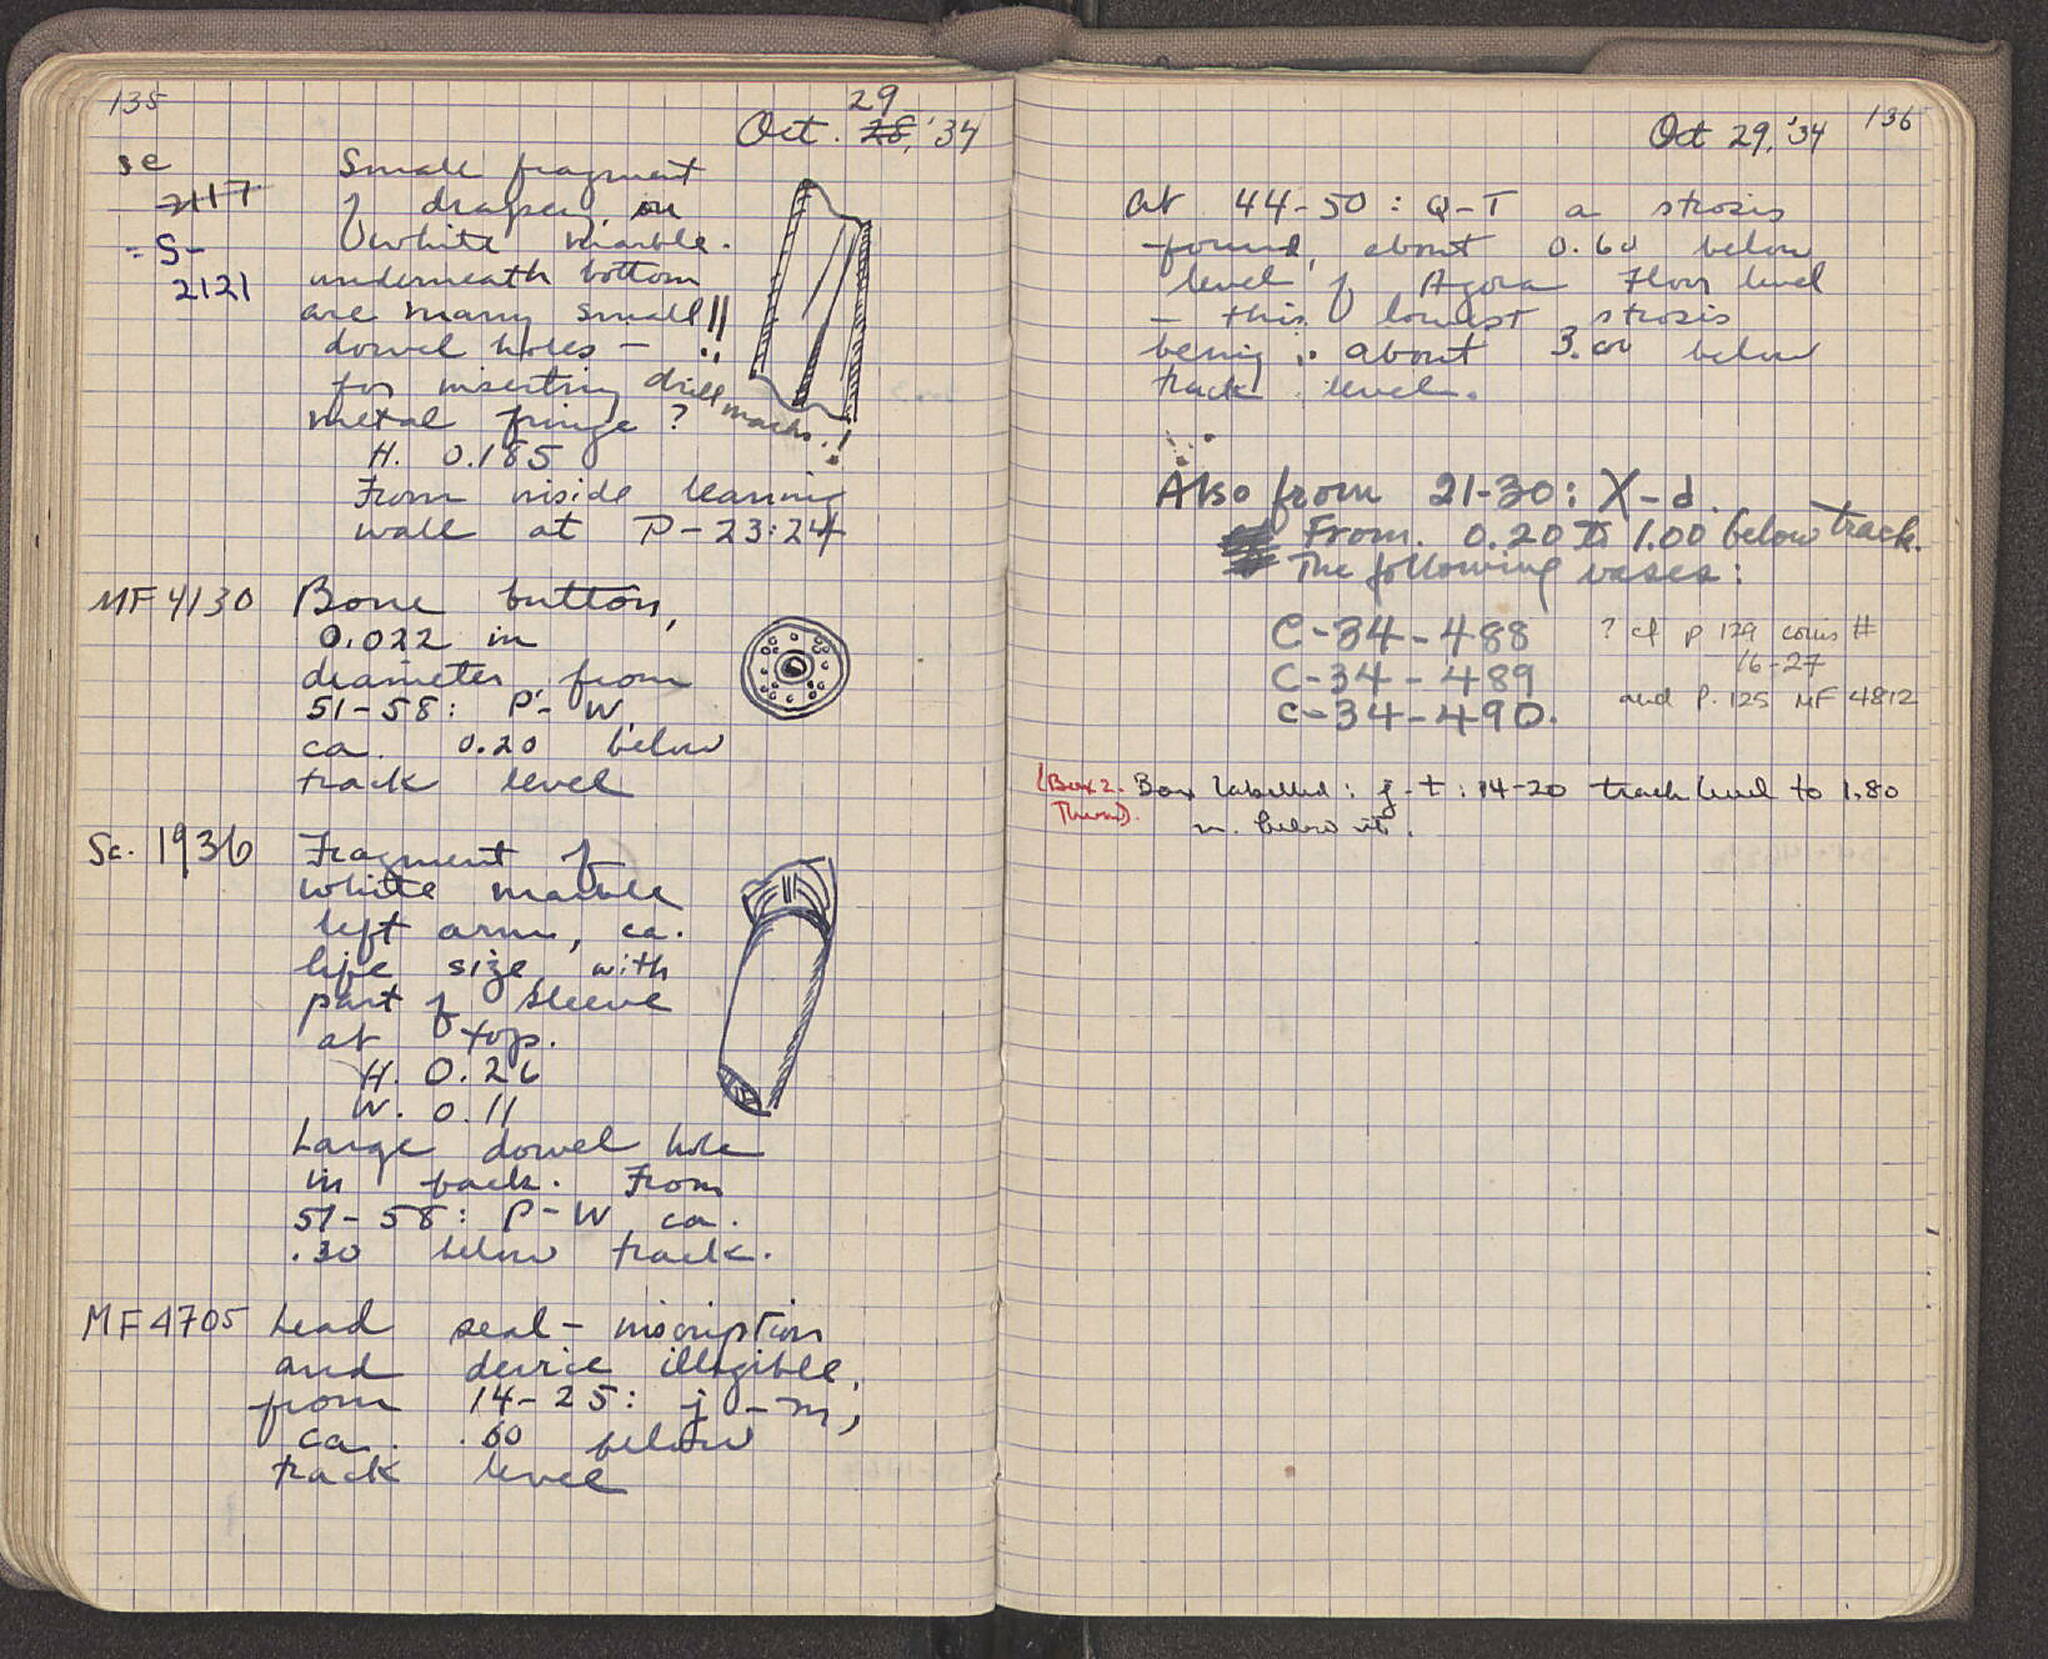 135
29
Oct. 28, '34
Sc
2117
= S-
2121
Small fragment
of drapery, in
white marble.
underneath bottom
are many small !!
dowel holes –
for inserting drill marks.!
metal fringe ?
H. 0.185
From inside leaning
wall at P-23:24
MF 4130 Bone button,
0.022 in
diameter from
51-58: P'- W
ca. 0.20 below
track level
Sc. 1936 Fragment of
white marble
left arm, ca.
life size with
part of sleeve
at top.
H. 0.26
W. 0.11
Large dowel hole
in back. From
51-58: P-W ca.
.30 below track.
MF 4705 Lead seal – inscription
and device illegible,
from 14-25: j-m,
ca. .60 below
track level
136
Oct 29, '34
At 44-50: Q-T a strosis
found, about 0.60 below
level of Agora Floor level
– this lowest strosis
being ∴ about 3.00 below
track level.
Also from 21-30: X-d.
From. 0.20 to 1.00 below track.
The following vases:
C-34-488
C-34-489
C-34-490.
? cf p 129 coins #
16-27
and P. 125 MF 4812
(Box 2. Box labelled: j-t: 14-20 track level to 1.80
Thrown). m. below it.